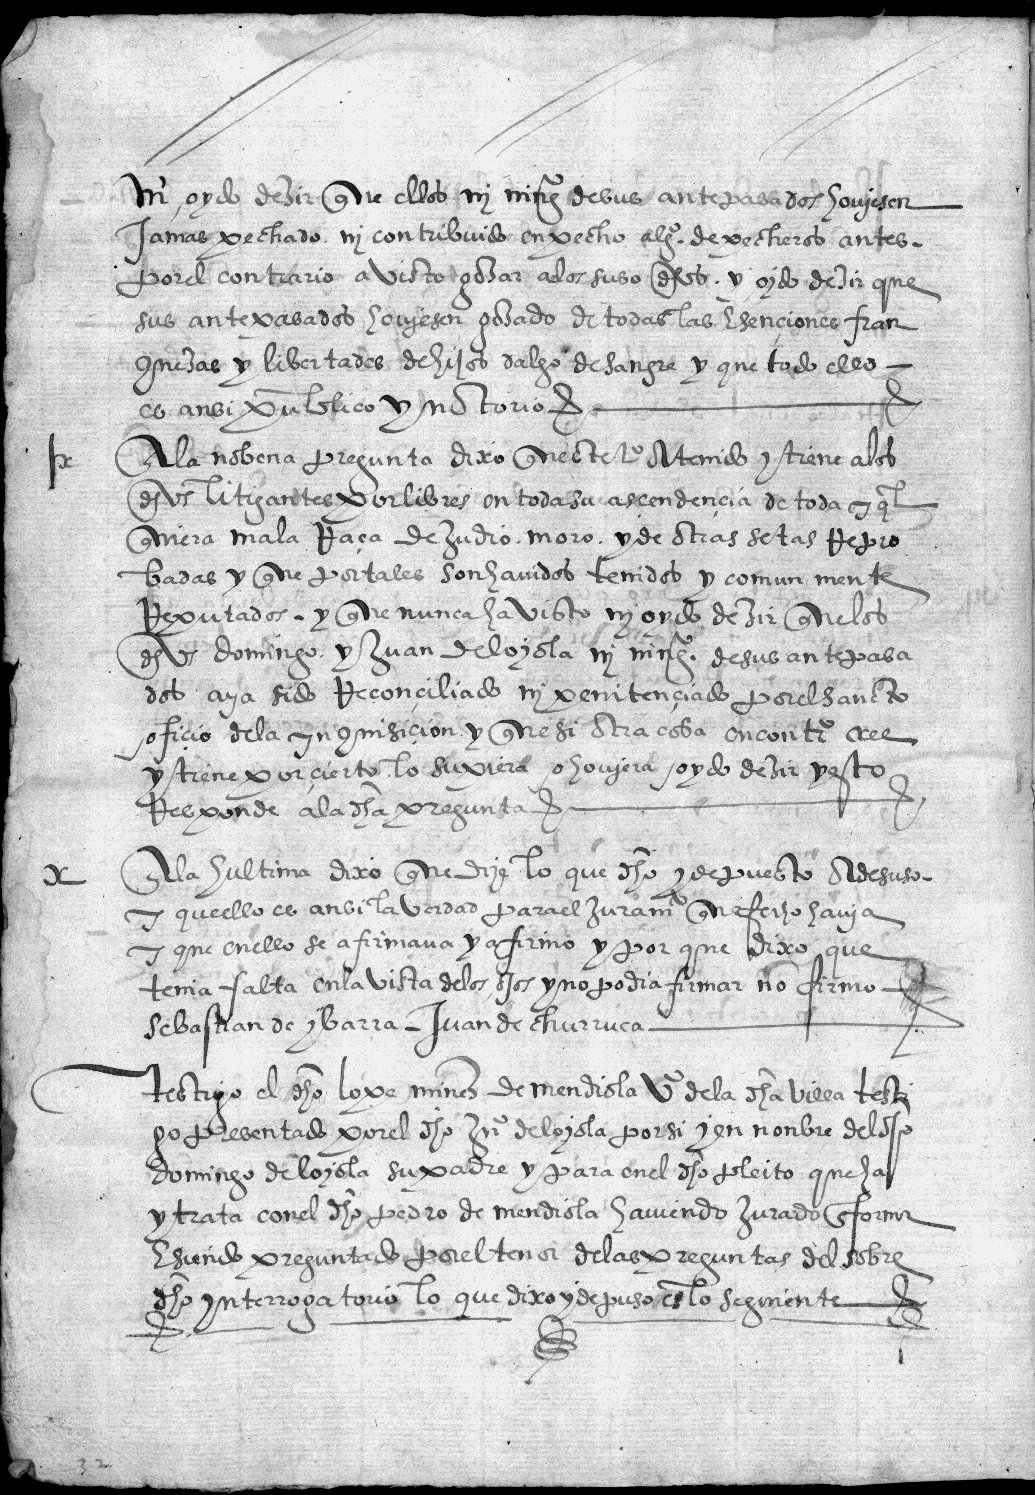 ni oydo dezir que ellos ny ning.º de sus antepasados houjesen
Jamas pechado ny contribuido en pecho alg.º de pecheros antes
por el contrario a visto gozar a los suso dhos y oydo dezir que
sus antepasados houjesen gozado de todas las esenciones fran
quezas y libertades de hijos dalgo de sangre y que todo ello
es ansi publico y notorio
ix A la nobena pregunta dixo que este t.º a tenido y tiene a los
dhos litigantes por libres en toda su ascendencia de toda y ql
quiera mala Raça de Judio moro y de otras setas Repro
badas y que por tales son hauidos tenidos y comun mente
Reputados y que nunca ha visto ny oydo dezir que los
dhos domingo y Juan de loyola ny ning.º de sus antepasa
dos aya sido Reconçiliado ny penitençiado por el sancto
ofiçio de la ynquisiçion y que si otra cosa en contr.º cree
y tiene por çierto lo supiera o houjera oydo dezir y esto
Responde a la dha pregunta
x A la hultima dixo que dize lo que dho y depuesto a de suso
y que ello es ansi la verdad para el Juram.º que fecho hauja
y que en ello se afirmaua y afirmo y por que dixo que
tenia falta en la vista de los ojos y no podia firmar no firmo
sebastian de ybarra Juan de churruca
Testigo el dho lope mines de mendiola v.º de la dha villa testi
go presentado por el dho Ju.º de loyola por si y en nonbre del dho
domingo de loyola su padre y para en el dho pleito que ha
y trata con el dho pedro de mendiola hauiendo Jurado en forma
E siendo preguntado por el tenor de las preguntas del sobre
dho ynterrogatorio lo que dixo y depuso es lo seguiente
32